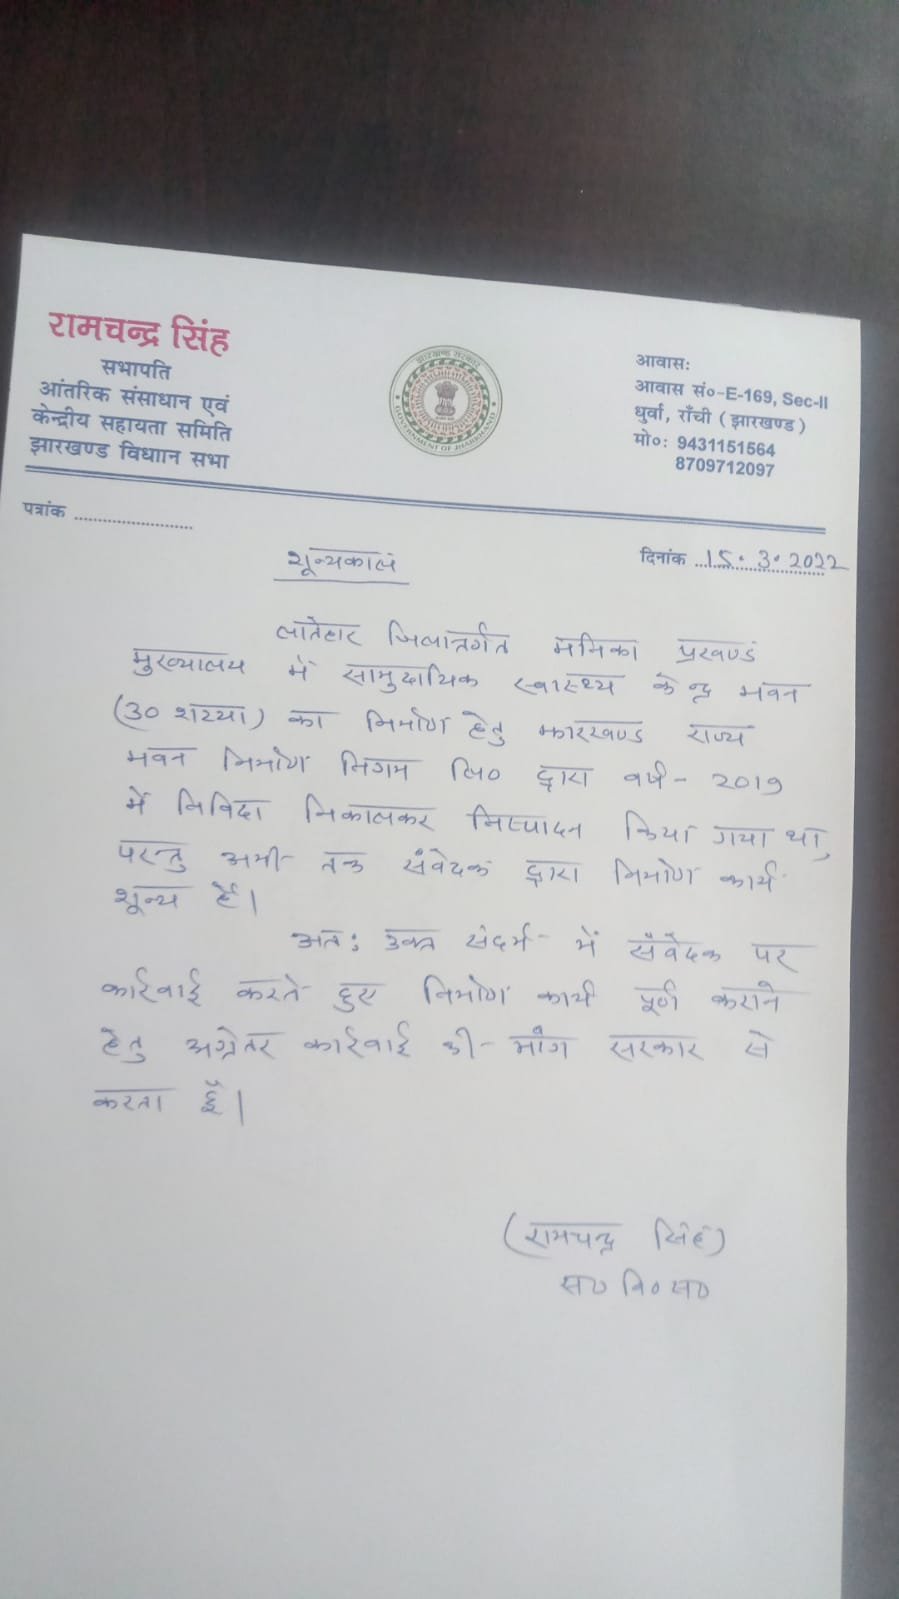 रामचन्द्र सिंह
सभापति
आंतरिक संसाधान एवं
केन्द्रीय सहायता समिति
झारखण्ड विधाान सभा
झारखण्ड सरकार
GOVERNMENT OF JHARKHAND
आवासः
आवास सं०-E-169, Sec-II
धुर्वा, राँची (झारखण्ड)
मो०: 9431151564
8709712097
पत्रांक ........................
दिनांक ....15.3.2022
शून्यकाल
लातेहार जिलान्तर्गत मनिका प्रखण्ड
मुख्यालय में सामुदायिक स्वास्थ्य केन्द्र भवन
(30 शय्या) का निर्माण हेतु झारखण्ड राज्य
भवन निर्माण निगम लि० द्वारा वर्ष - 2019
में निविदा निकालकर निष्पादन किया गया था,
परन्तु अभी तक संवेदक द्वारा निर्माण कार्य
शून्य है।
अतः उक्त संदर्भ में संवेदक पर
कार्रवाई करते हुए निर्माण कार्य पूर्ण कराने
हेतु अग्रेतर कार्रवाई की माँग सरकार से
करता हूँ।
(रामचन्द्र सिंह)
स० वि० स०